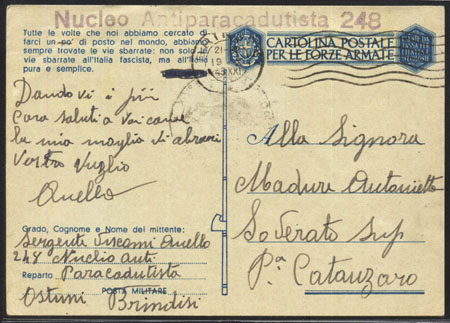 Nucleo Antiparacadutista 248
Tutte le volte che noi abbiamo cercato di
farci un po' di posto nel mondo, abbiamo
sempre trovate le vie sbarrate: non solo le
vie sbarrate all'Italia fascista, ma all'Italia
pura e semplice.
CARTOLINA POSTALE
PER LE FORZE ARMATE
Dando vi i più
Cara saluti a voi
la mia moglia
Vostro
Auello
Alla Signora
Madure Antonietta
Soverato Sup
Pª Catanzaro
Grado, Cognome e Nome del mittente:
Sergente Viscomi Auello
248 Nuclio anti
Reparto Paracadutista
POSTA MILITARE
Ostuni Brindisi